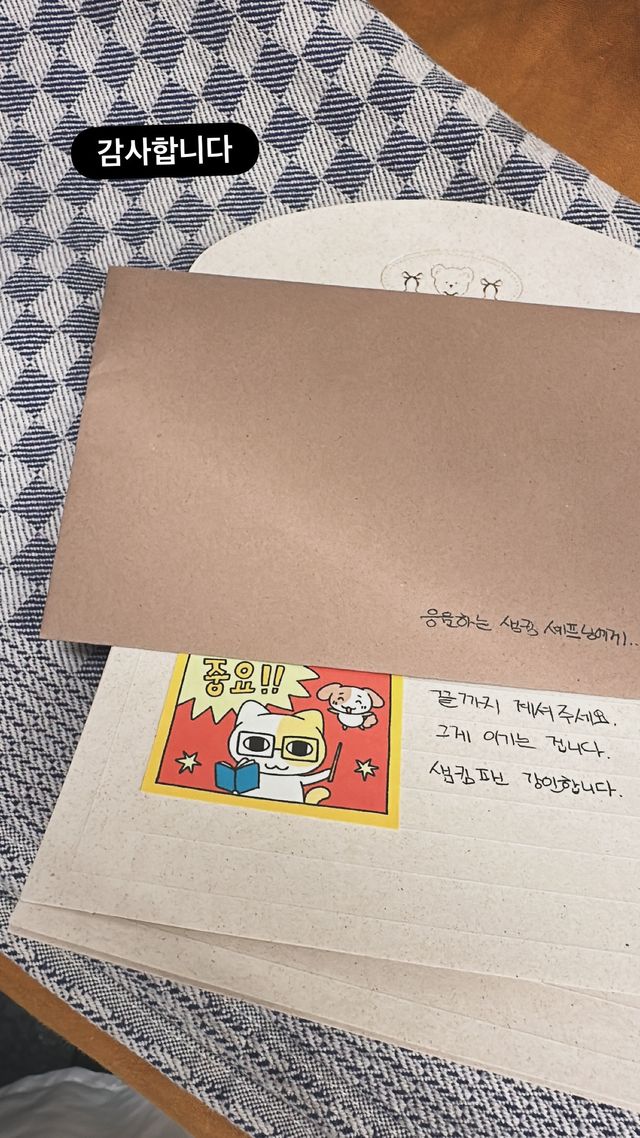 감사합니다
응원하는 샘킴 셰프님에게..
중요!!
끝까지 계셔주세요.
그게 이기는 겁니다.
샘킴파브 강인합니다.